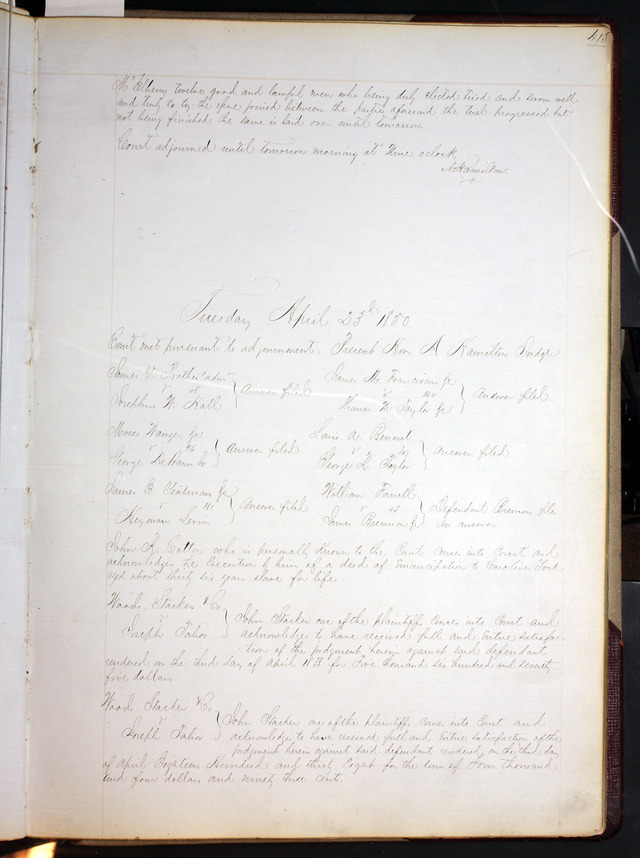 418
McElheny twelve good and lawful men who being duly elected tried and sworn well
and truly to try the issue joined between the parties aforesaid the trial progressed but
not being finished the same is laid over until tomorrow
Court adjourned until tomorrow morning at Nine oclock
A Hamilton
Tuesday April 23d 1850
Court met pursuant to adjournment, Present Hon A Hamilton Judge
James V. Prather adm
v
Josephus W. Hall
Answer filed
James M. Franciscus Jr
v
Thomas W. Taylor Jr
Answer filed
Moses Wanger Jr
v
George DeBaun Jr
Answer filed
Louis A. Benoist
v
George R. Taylor
Answer filed
James B. Yeatman Jr
v
Heyman Levin
Answer filed
William Farrell
v
James Brennan Jr
Defendant Brennan files
an answer
John K. Cotton who is personally known to the Court comes into Court and
acknowledges the execution by him of a deed of Emancipation to Caroline
aged about thirty six years slave for life
Woods, Stacker & Co
v
Joseph Tabor
John Stacker one of the plaintiffs comes into Court and
acknowledges to have received full and entire satisfac-
tion of the judgment herein against said defendant
rendered on the third day of April 1838 for Five thousand six hundred and seventy
five dollars
Woods Stacker & Co
v
Joseph Tabor
John Stacker one of the plaintiffs comes into Court and
acknowledges to have received full and entire satisfaction of the
judgment herein against said defendant rendered on the third day
of April Eighteen Hundred and thirty Eight for the sum of Four thousand
and four dollars and ninety three cents.